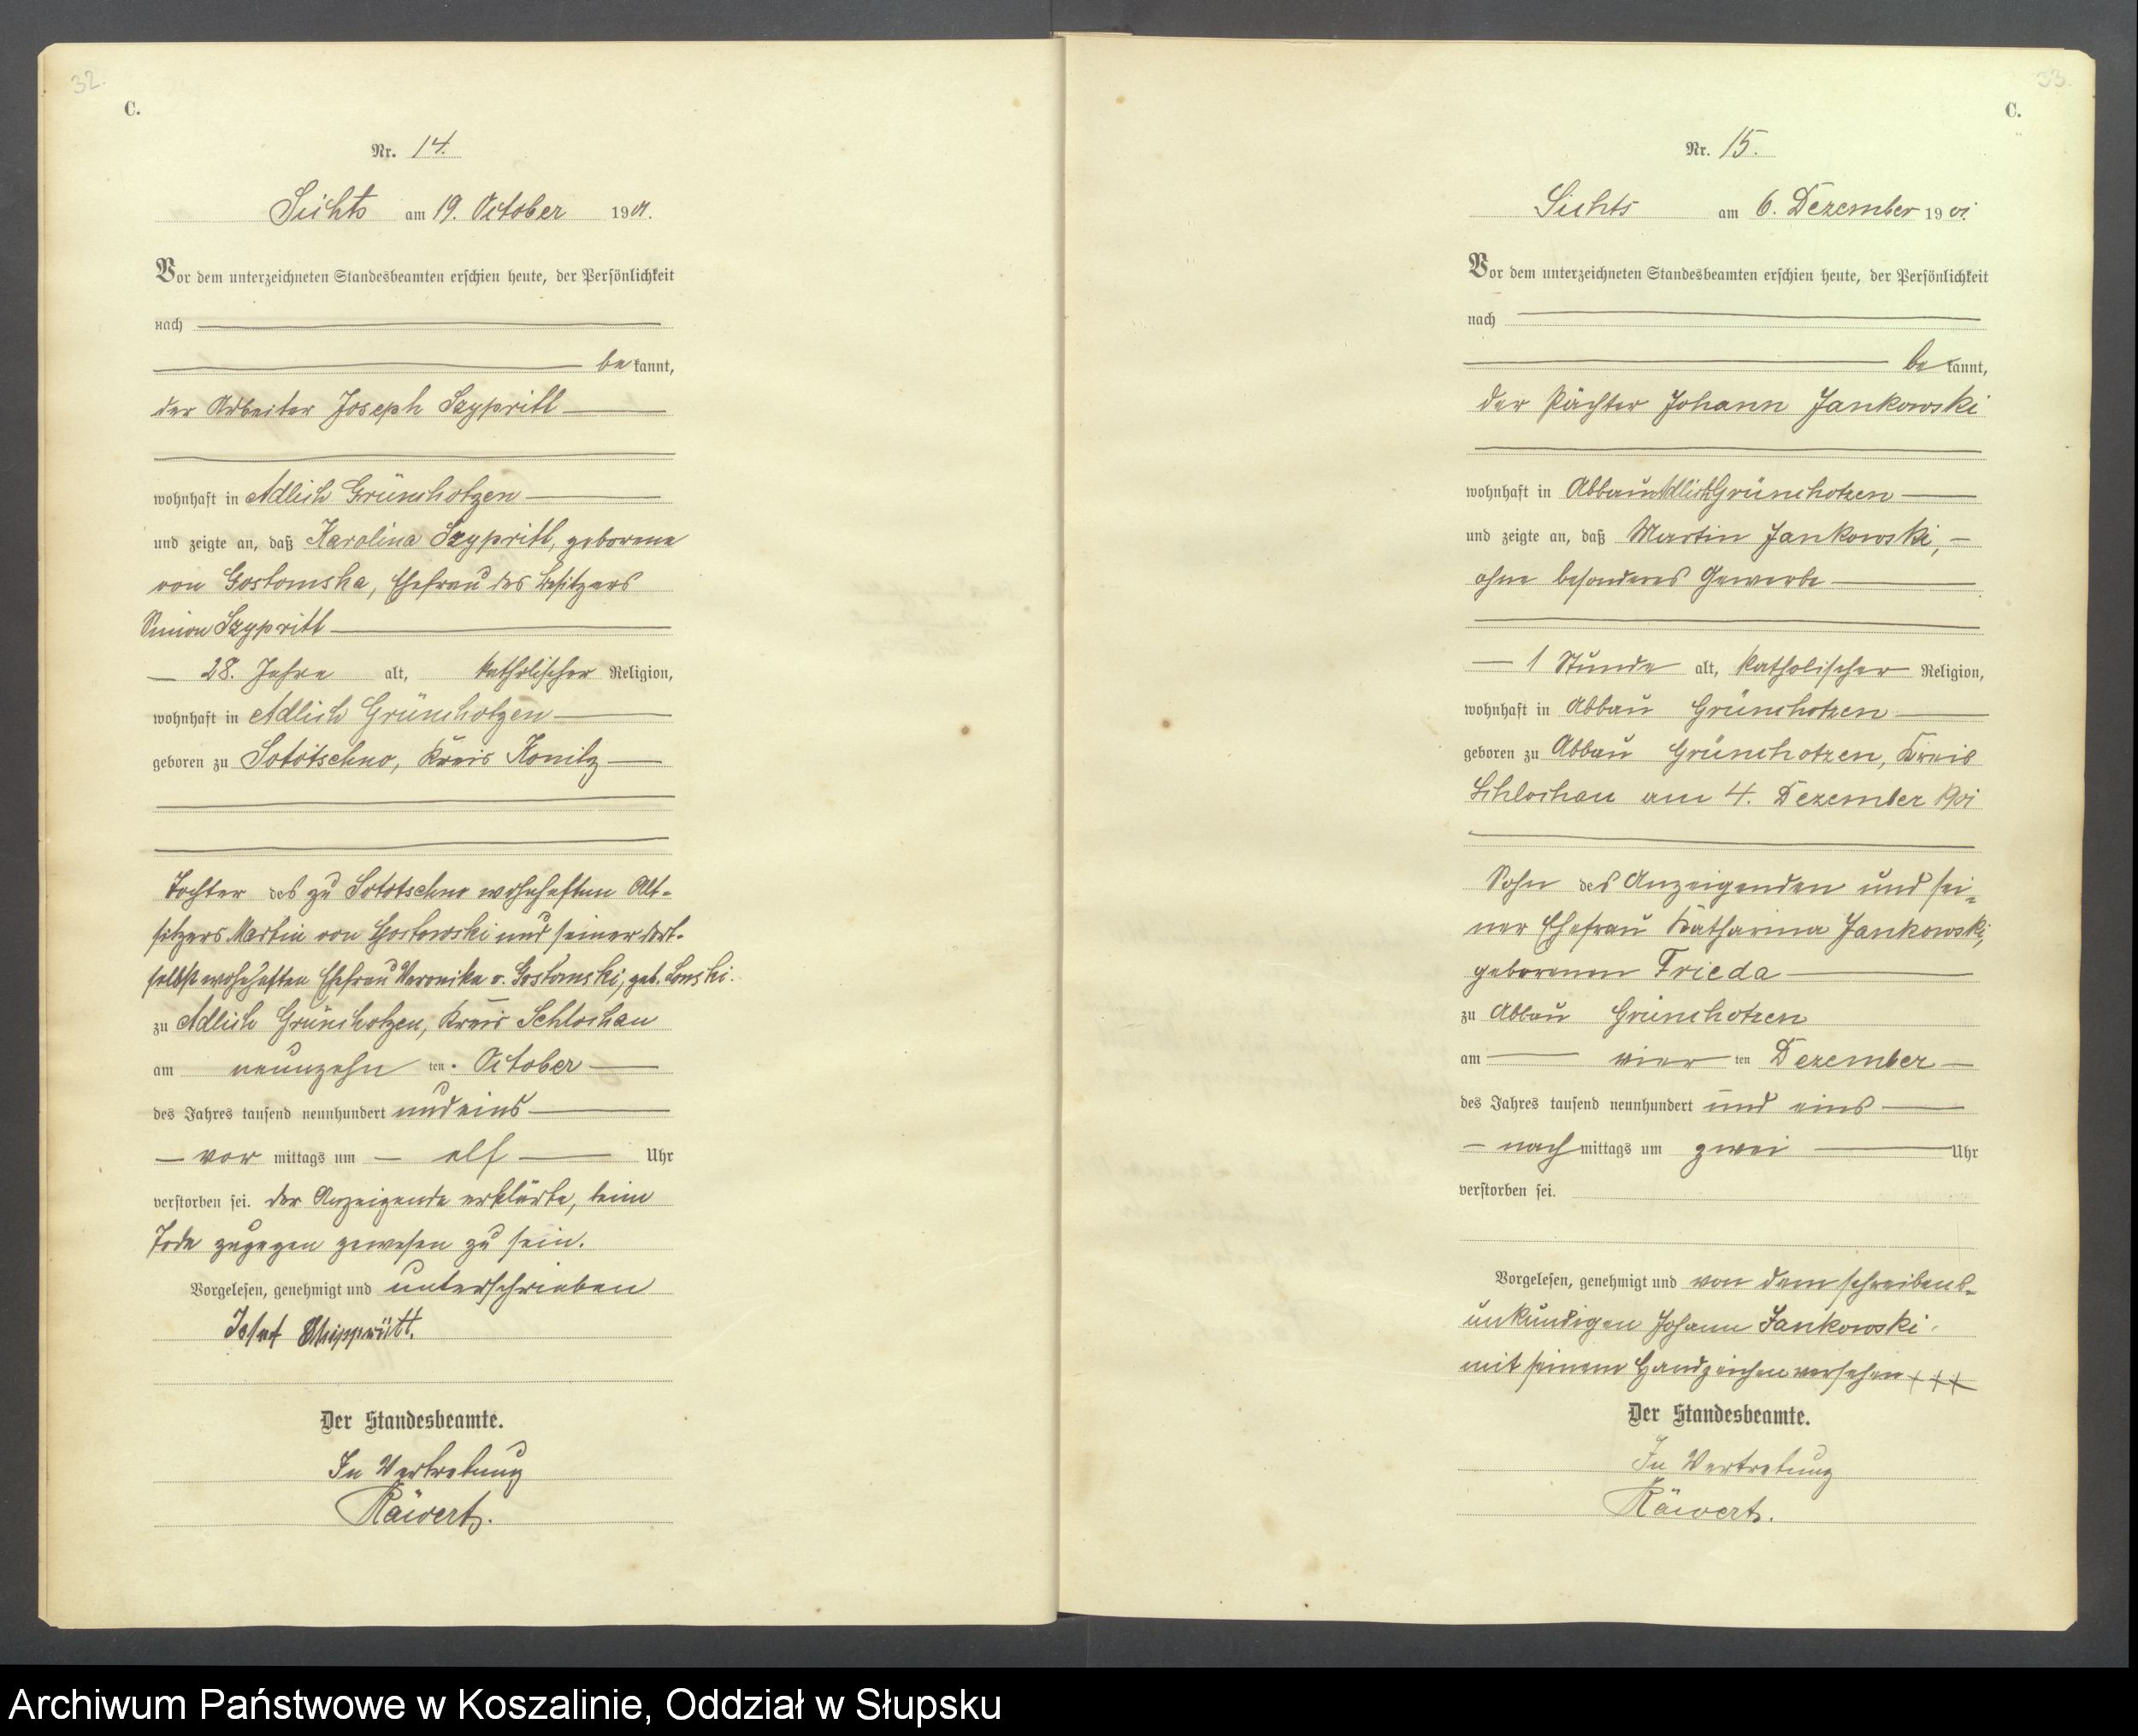 32.
C.
Nr. 14.
Sichts am 19. October 1901.
Vor dem unterzeichneten Standesbeamten erschien heute, der Persönlichkeit
nach
be kannt,
der Arbeiter Joseph Szypritt
wohnhaft in Adlich Grünchotzen
und zeigte an, daß Karolina Szypritt, geborene
von Gostomska, Ehefrau des Besitzers
Simon Szypritt
28. Jahre alt, katholischer Religion,
wohnhaft in Adlich Grünchotzen
geboren zu Lototschno, Kreis Konitz
Tochter des zu Lototschno wohnhaften Alt-
sitzers Martin von Gostomski und seiner dort-
selbst wohnhaften Ehefrau Veronika v. Gostomski, geb. Lonski.
zu Adlich Grünchotzen, Kreis Schlochau
am neunzehn ten. October
des Jahres tausend neunhundert und eins
vor mittags um elf Uhr
verstorben sei. Der Anzeigende erklärte, beim
Tode zugegen gewesen zu sein.
Vorgelesen, genehmigt und unterschrieben
Josef
Der Standesbeamte.
In Vertretung
Räwerts.
33.
C.
Nr. 15.
Sichts am 6. Dezember 1901.
Vor dem unterzeichneten Standesbeamten erschien heute, der Persönlichkeit
nach
be kannt,
der Pächter Johann Jankowski
wohnhaft in Abbau Adlich Grünchotzen
und zeigte an, daß Martin Jankowski,
ohne besonderes Gewerbe
1 Stunde alt, katholischer Religion,
wohnhaft in Abbau Grünchotzen
geboren zu Abbau Grünchotzen, Kreis
Schlochau am 4. Dezember 1901
Sohn des Anzeigenden und sei-
ner Ehefrau Katharina Jankowski,
geborenen Frieda
zu Abbau Grünchotzen
am vier ten Dezember
des Jahres tausend neunhundert und eins
nach mittags um zwei Uhr
verstorben sei.
Vorgelesen, genehmigt und von dem schreibens-
unkundigen Johann Jankowski
mit seinem Handzeichen versehen +++
Der Standesbeamte.
In Vertretung
Räwerts.
Archiwum Państwowe w Koszalinie, Oddział w Słupsku